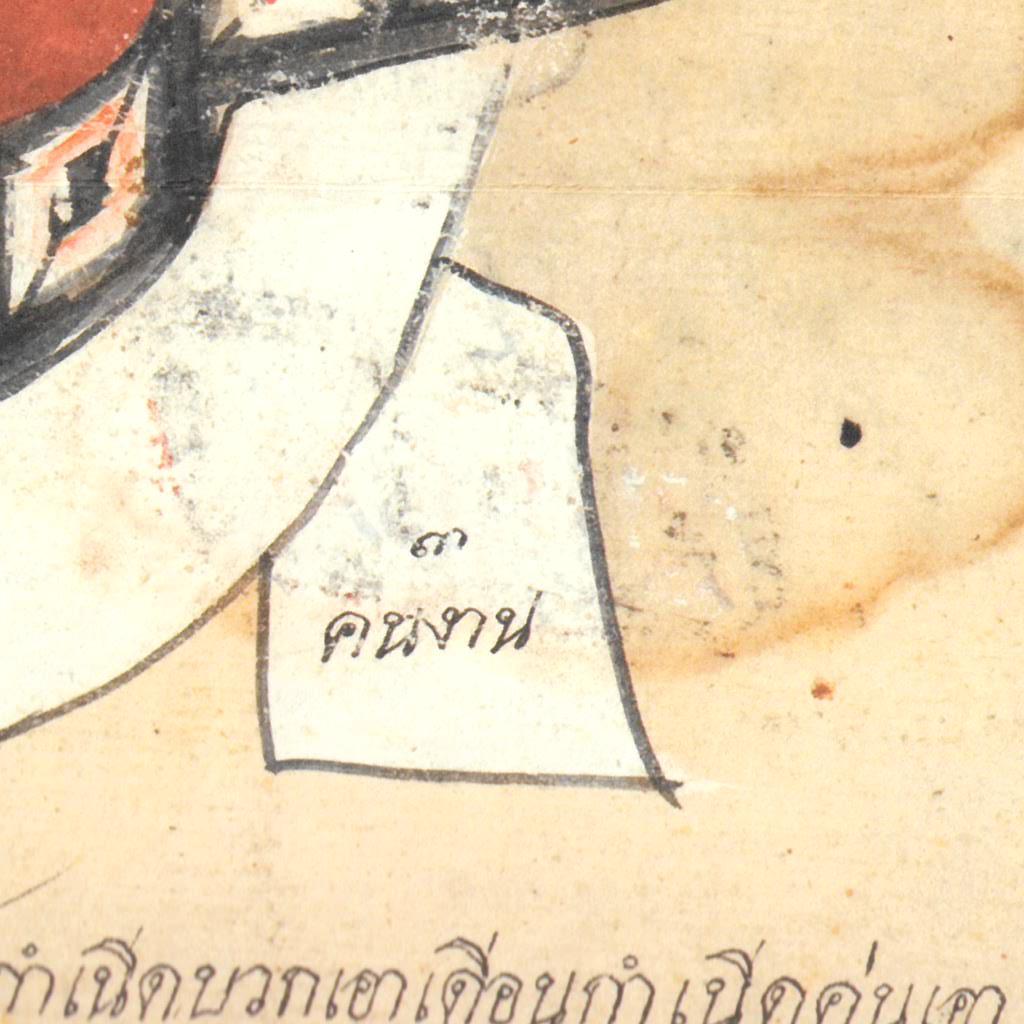 ๓
คนงาน
กำเนิดบวกเอาเดือนกำเนิดคูนเอา